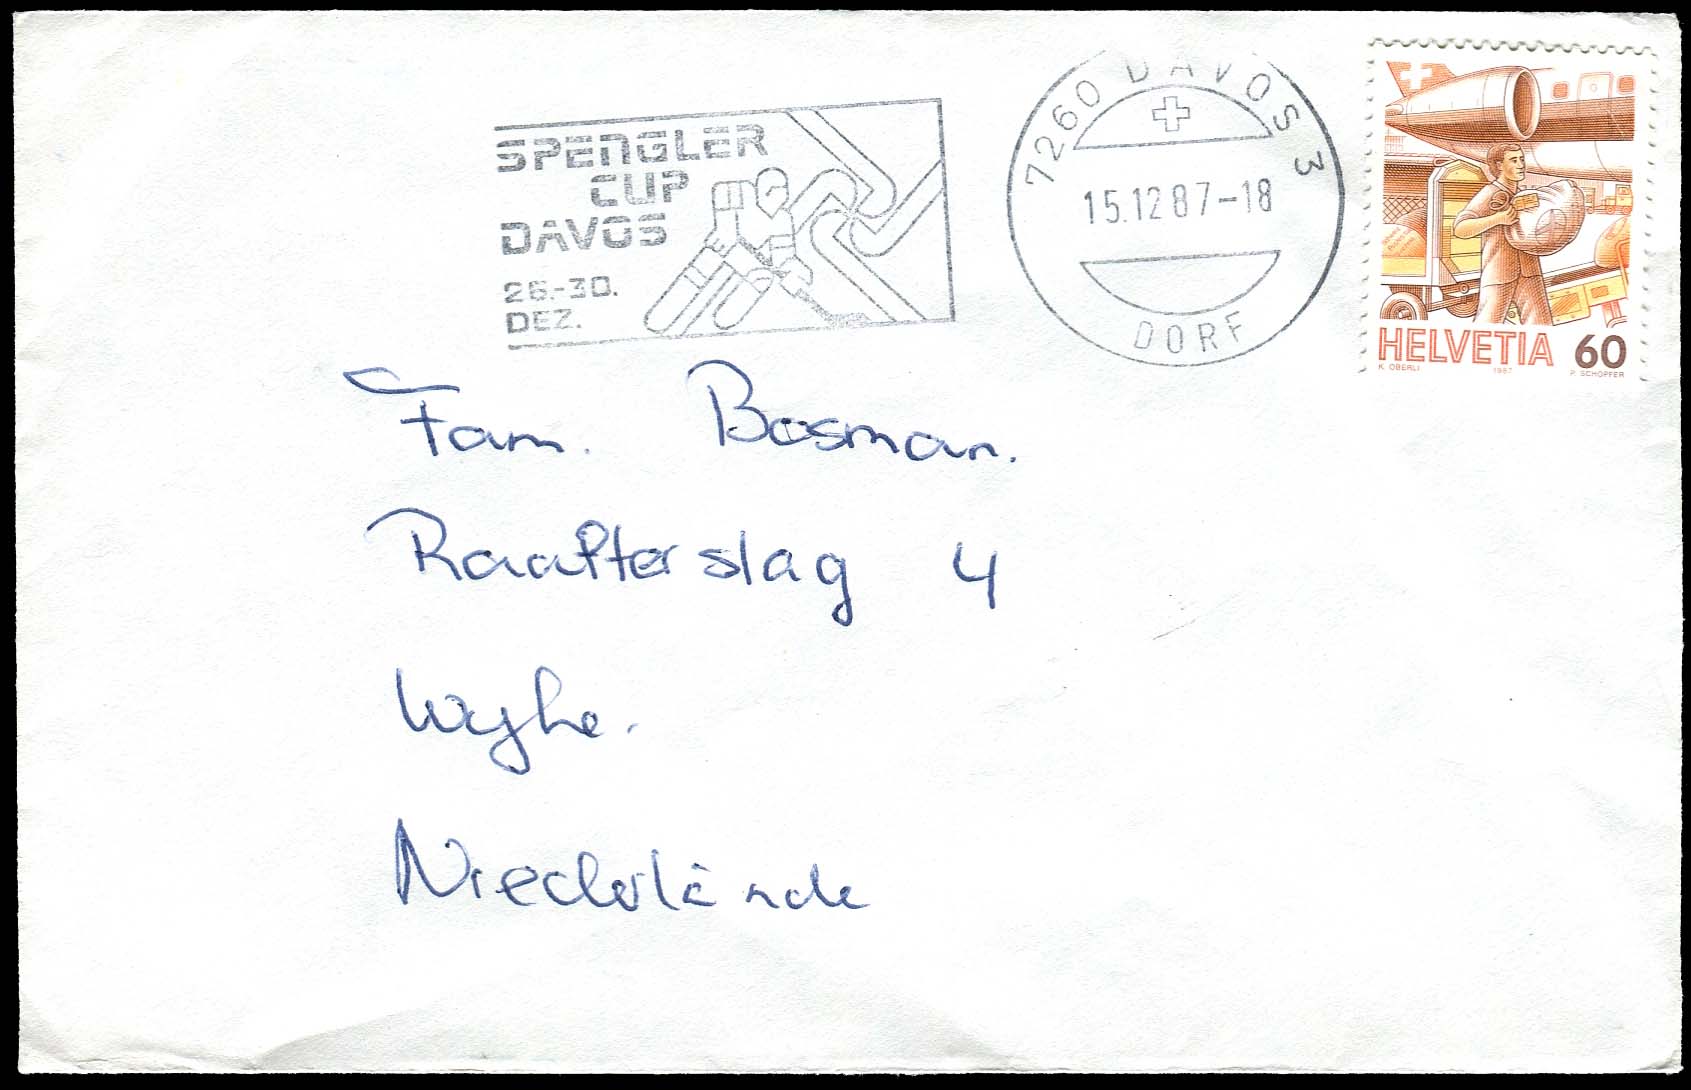 SPENGLER
CUP
DAVOS
26.-30.
DEZ.
7260 DAVOS 3
15.12 87-18
DORF
HELVETIA 60
K. OBERLI 1987 P. SCHOPFER
Fam. Bosman.
Raalterslag 4
Wyhe.
Niederlände